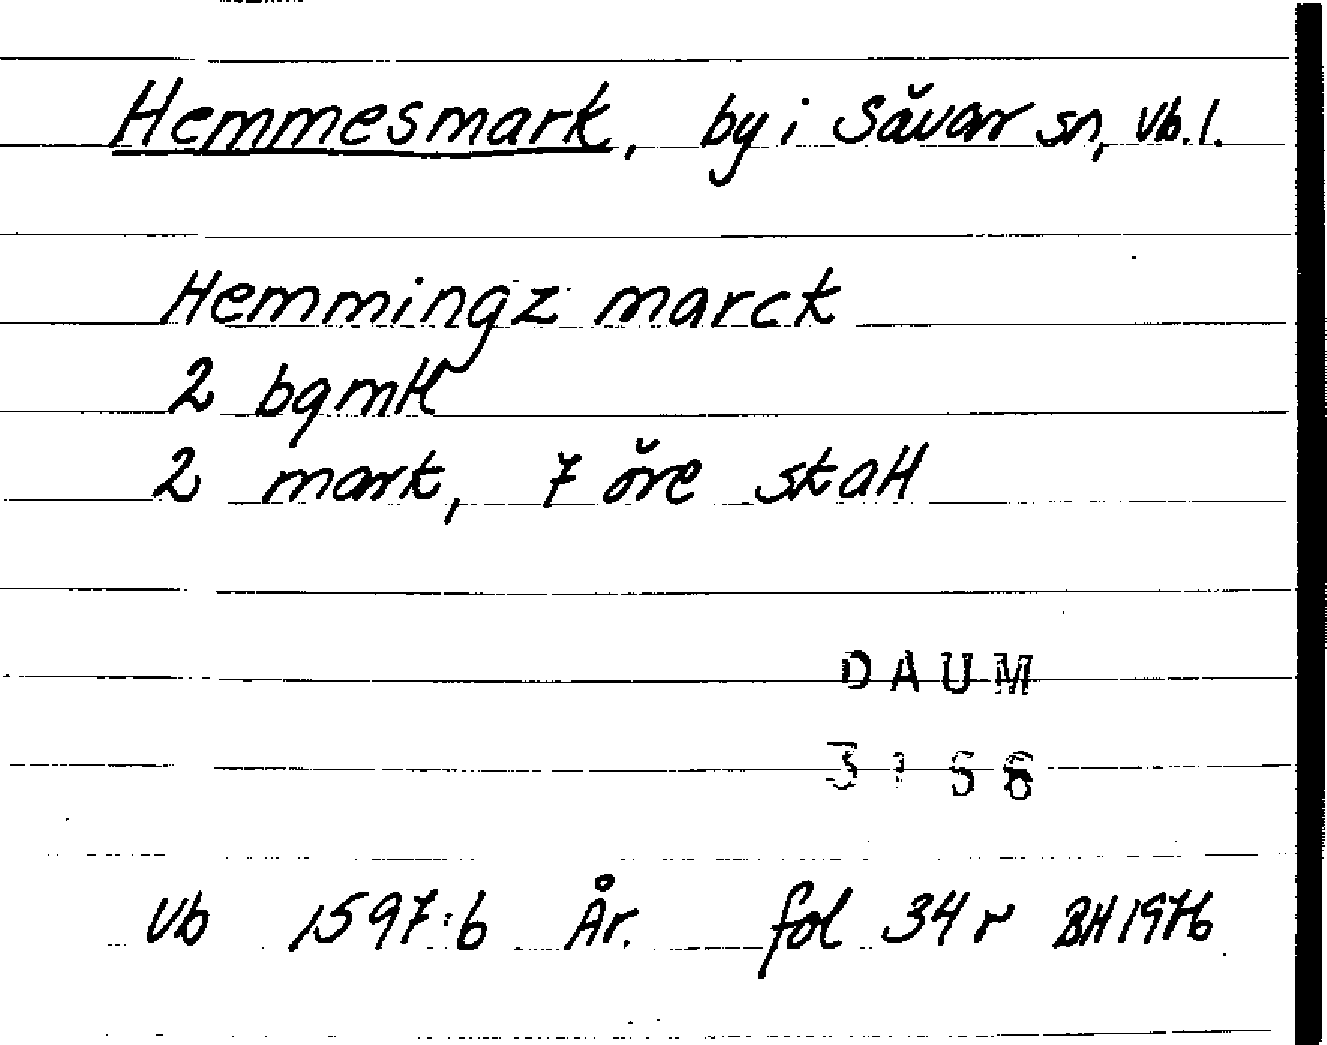 Hemmesmark, by i Sävar sn, Vb. l.
Hemmingz marck
2 bgmtl
2 mark, 7 öre skatt
DAUM
Vb 1597:6 År. fol 34 r BH 1976